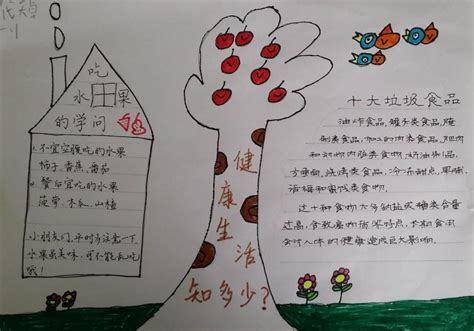 吃
水果
的学问
1、不宜空腹吃的水果
柿子 香蕉 番茄
2、餐后宜吃的水果
菠萝、木瓜、山楂
小朋友们,平时方注意一下,
水果虽美味,可不能乱吃
哦!
健康生活
知多少?
十大垃圾食品
油炸食品,罐头类食品,腌
制类食品,加工的肉类食品,肥肉
和动物内脏类食物,奶油制品,
方便面,烧烤类食品,冷冻甜点,果脯、
话梅和蜜饯类食物。
这十种食物大多钠盐或糖类含量
过高,含致癌物质等特点,长期食用
会对人体的健康造成巨大影响.